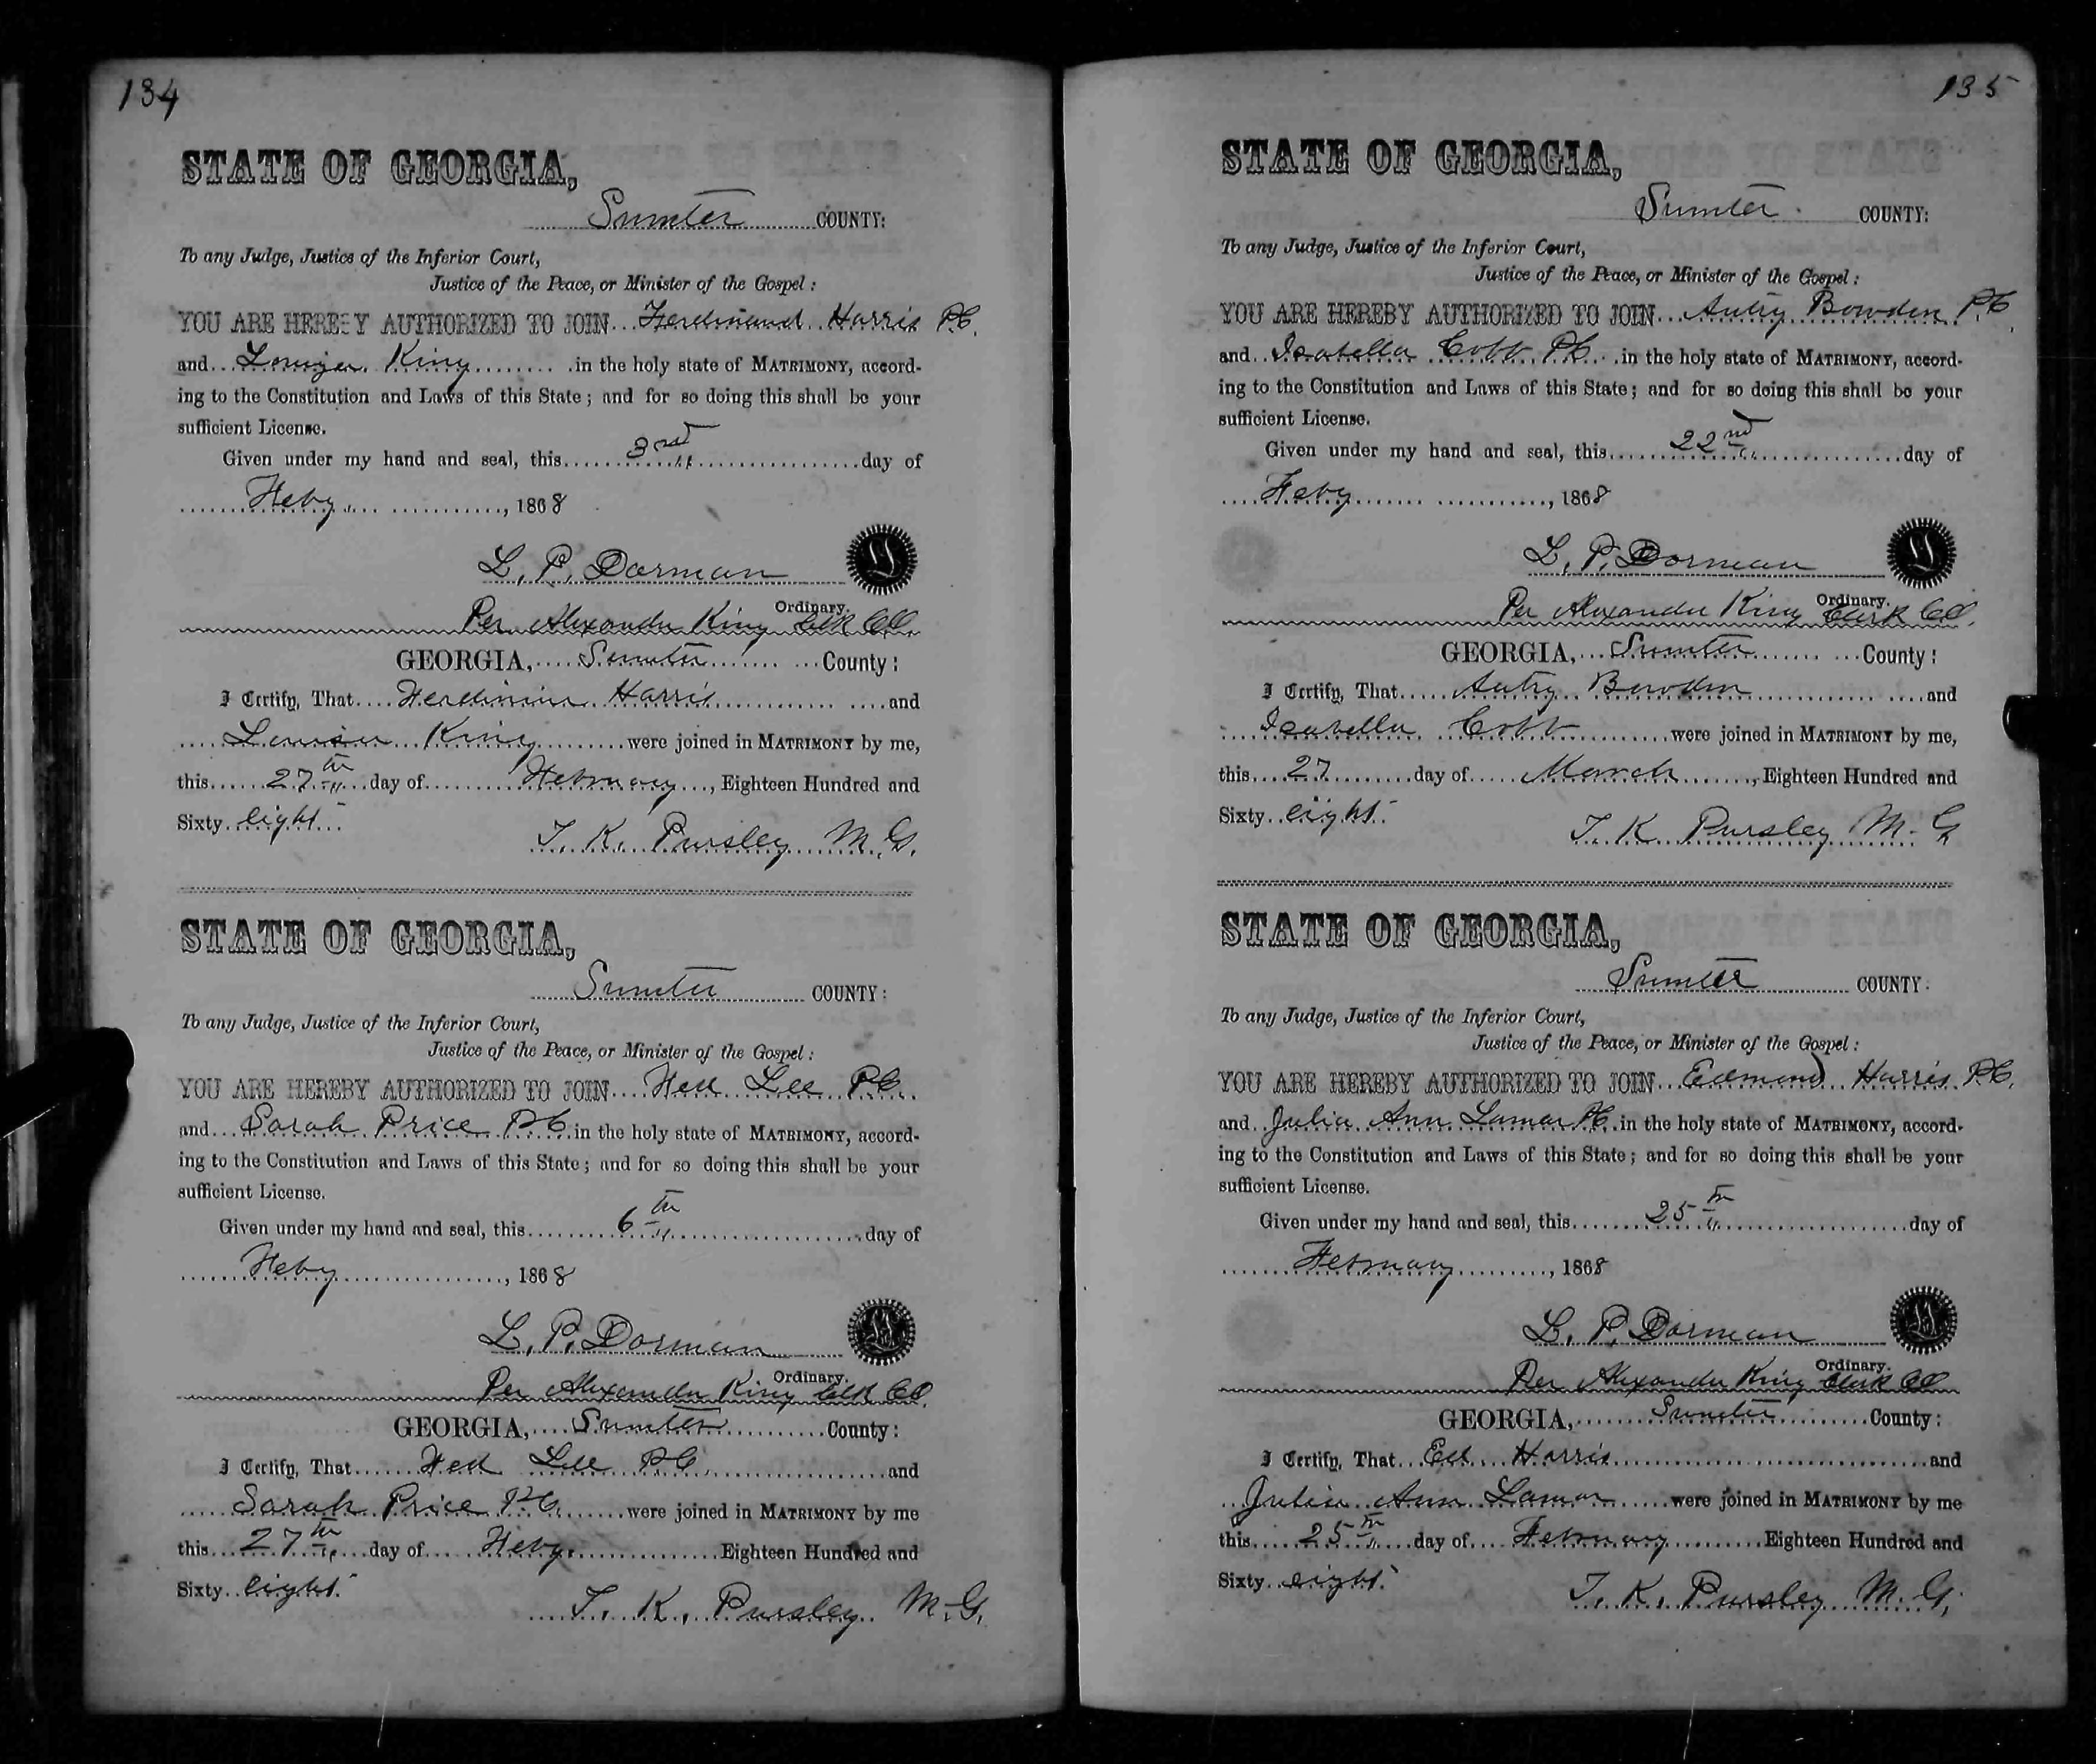 134
STATE OF GEORGIA,
Sumter COUNTY:
To any Judge, Justice of the Inferior Court,
Justice of the Peace, or Minister of the Gospel:
YOU ARE HEREBY AUTHORIZED TO JOIN Ferdinand Harris P.C.
and Louiza King in the holy state of MATRIMONY, accord-
ing to the Constitution and Laws of this State; and for so doing this shall be your
sufficient License.
Given under my hand and seal, this 3rd day of
Feby, 1868
L. P. Dorman
Ordinary.
Per Alexander King Clk CO.
GEORGIA, Sumter County:
I Certify, That Harris and
Louisa King were joined in MATRIMONY by me,
this 27th day of February, Eighteen Hundred and
Sixty eight
T. K. Pursley M.G.
STATE OF GEORGIA,
Sumter COUNTY:
To any Judge, Justice of the Inferior Court,
Justice of the Peace, or Minister of the Gospel:
YOU ARE HEREBY AUTHORIZED TO JOIN Lee P.C.
and Sarah Price P.C. in the holy state of MATRIMONY, accord-
ing to the Constitution and Laws of this State; and for so doing this shall be your
sufficient License.
Given under my hand and seal, this 6th day of
Feby, 1868
L. P. Dorman
Ordinary.
Per Alexander King Clk CO.
GEORGIA, Sumter County:
I Certify, That Lee P.C. and
Sarah Price P.C. were joined in MATRIMONY by me
this 27th day of Feby. Eighteen Hundred and
Sixty eight
T. K. Pursley M.G.
135
STATE OF GEORGIA,
Sumter COUNTY:
To any Judge, Justice of the Inferior Court,
Justice of the Peace, or Minister of the Gospel:
YOU ARE HEREBY AUTHORIZED TO JOIN Autry Bowden P.C.
and Isabella Cobb P.C. in the holy state of MATRIMONY, accord-
ing to the Constitution and Laws of this State; and for so doing this shall be your
sufficient License.
Given under my hand and seal, this 22nd day of
Feby, 1868
L. P. Dorman
Ordinary.
Per Alexander King Clerk CO.
GEORGIA, Sumter County:
I Certify, That Autry Bowden and
Isabella Cobb were joined in MATRIMONY by me,
this 27 day of March, Eighteen Hundred and
Sixty eight
T. K. Pursley M.G
STATE OF GEORGIA,
Sumter COUNTY:
To any Judge, Justice of the Inferior Court,
Justice of the Peace, or Minister of the Gospel:
YOU ARE HEREBY AUTHORIZED TO JOIN Edmond Harris P.C.
and Julia Ann Lamar P.C. in the holy state of MATRIMONY, accord-
ing to the Constitution and Laws of this State; and for so doing this shall be your
sufficient License.
Given under my hand and seal, this 25th day of
February, 1868
L. P. Dorman
Ordinary.
Per Alexander King Clerk CO
GEORGIA, Sumter County:
I Certify, That Ed Harris and
Julia Ann Lamar were joined in MATRIMONY by me
this 25th day of February Eighteen Hundred and
Sixty eight
T. K. Pursley M.G.